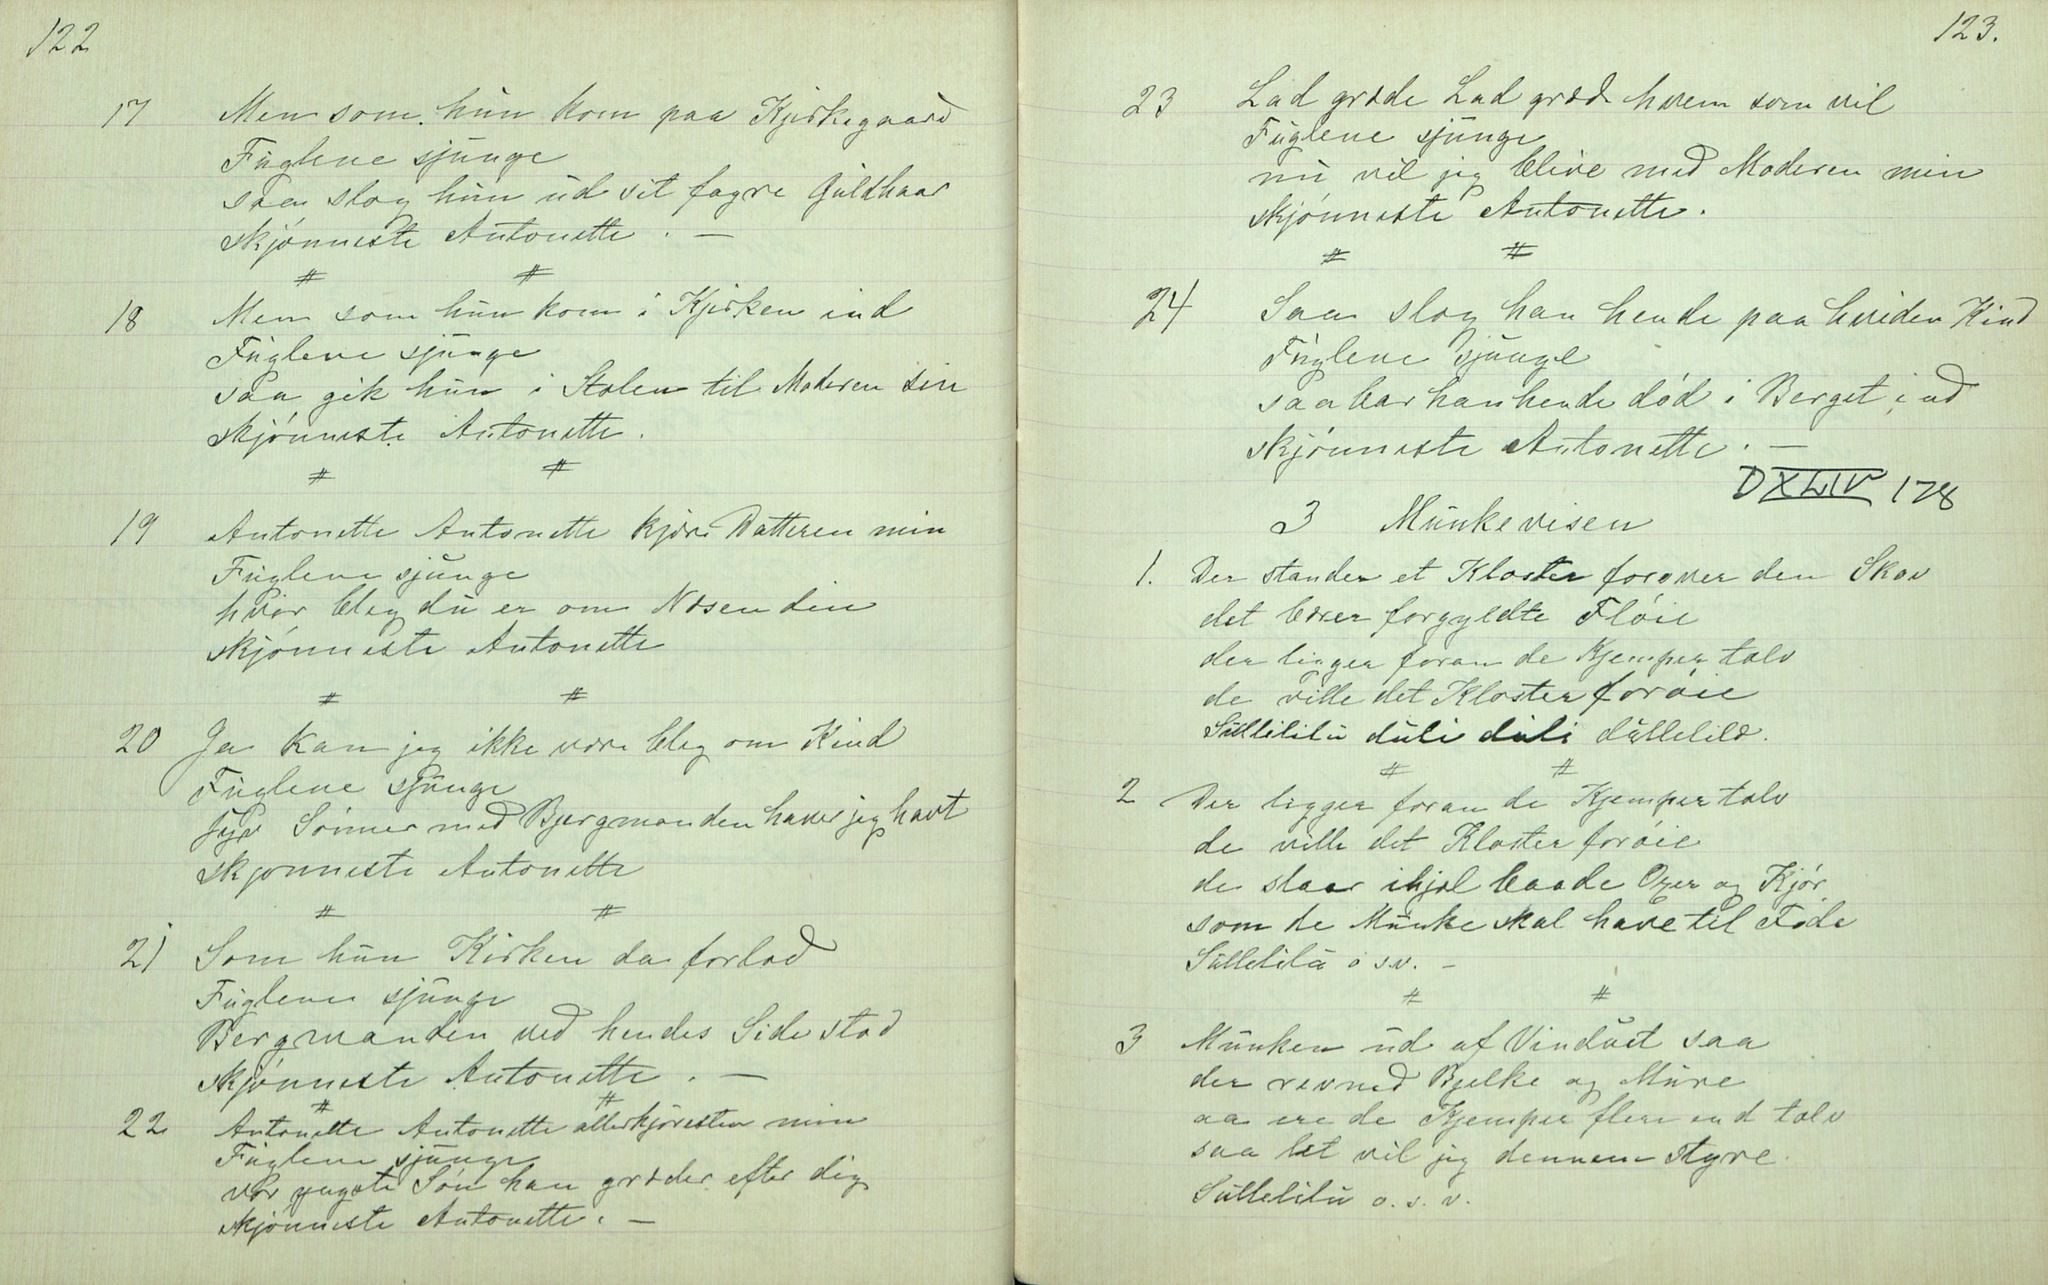 122
17 Men som hun kom paa Kjirkegaard
Fuglene sjunge
saa slog hun ud sit fagre Guldhaar
skjönneste Antonette . —
# #
18 Men som hun kom i Kjirken ind
Fuglene sjunge
saa gik hun i Stolen til Moderen sin
skjönneste Antonette.
# #
19 Antonette Antonette kjære Datteren min
Fuglene sjunge
hvor bleg du er om Næsen din
skjönneste Antonette
# #
20 Ja kan jeg ikke være bleg om Kind
Fuglene sjunge
syv Sönner med Bjergmanden haver jeg havt
skjonneste Antonette
# #
21 Som hun Kirken da forlod
Fuglene sjunge
Bergmanden ved hendes Side stod
skjönneste Antonette . —
# #
22 Antonette Antonette allerkjæresten min
Fuglene sjunge
vor yngste Sön han græder efter dig
skjönneste Antonette. —
123.
23 Lad græde Lad græde hvem som vil
Fuglene sjunge
nu vil jeg blive med Moderen min
skjönneste Antonette.
# #
24 Saa slog han hende paa hviden Kind
Fuglene sjunge
saa bar han hende död i Berget ind
skjönneste Antonette. —
DXLIV 178
3 Munkevisen
1. Der stander et Kloster forover den Skov
det bærer forgyldte Flöie
der ligger foran de Kjemper tolv
de ville det Kloster foröie
Sullelilu duli duli dullelild.
# #
2 Der ligger foran de Kjemper tolv
de ville det Kloster foröie
de slaar ihjel baade Oxer og Kjör
som de Munke skal have til Föde
Sullelilu o s.v. —
# #
3 Munken ud af Vinduet saa
der revned Bjelke og Mure
aa ere de Kjemper flere end tolv
saa let vil jeg dennem styre.
Sullelilu o. s. v.